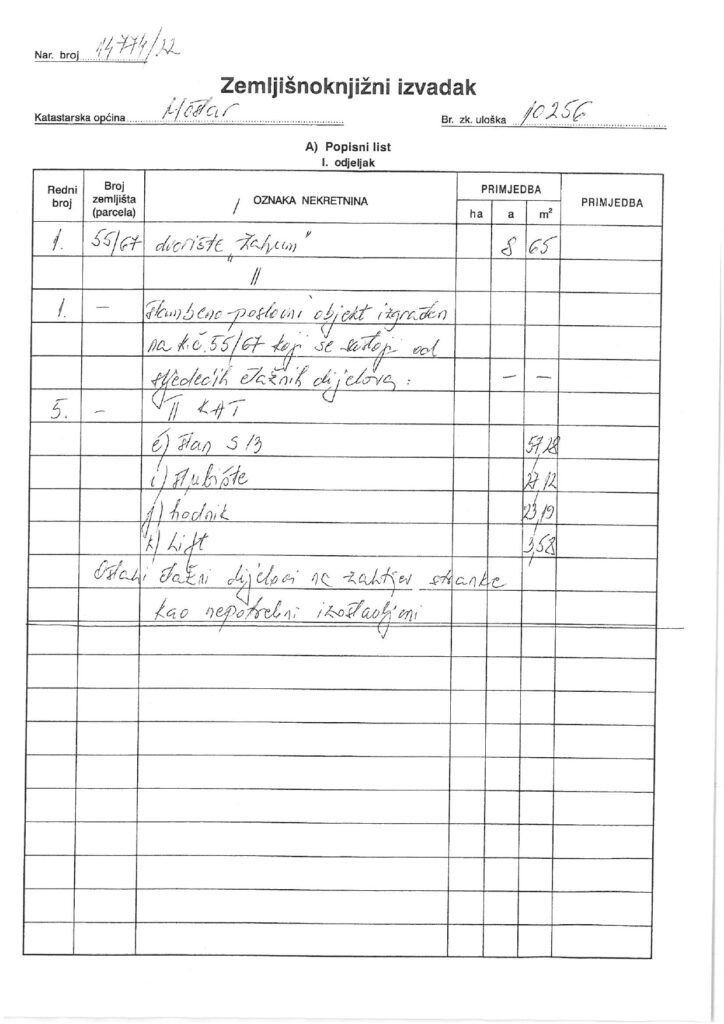 Nar. broj 14774/22
Zemljišnoknjižni izvadak
Katastarska općina Mostar Br. zk. uloška 10256
A) Popisni list
I. odjeljak
Redni broj
Broj zemljišta (parcela)
OZNAKA NEKRETNINA
PRIMJEDBA
ha a m²
PRIMJEDBA
I
1. 55/67 dvorište "Zahum" 8 65
II
1. – Stambeno-poslovni objekt izgrađen
na k.č. 55/67 koji se sastoji od
sljedećih etažnih dijelova: – –
5. – II KAT
e) stan S 13 57,28
i) stubište 27,12
j) hodnik 23,19
k) Lift 3,58
Ostali etažni dijelovi na zahtjev stranke
kao nepotrebni izostavljeni